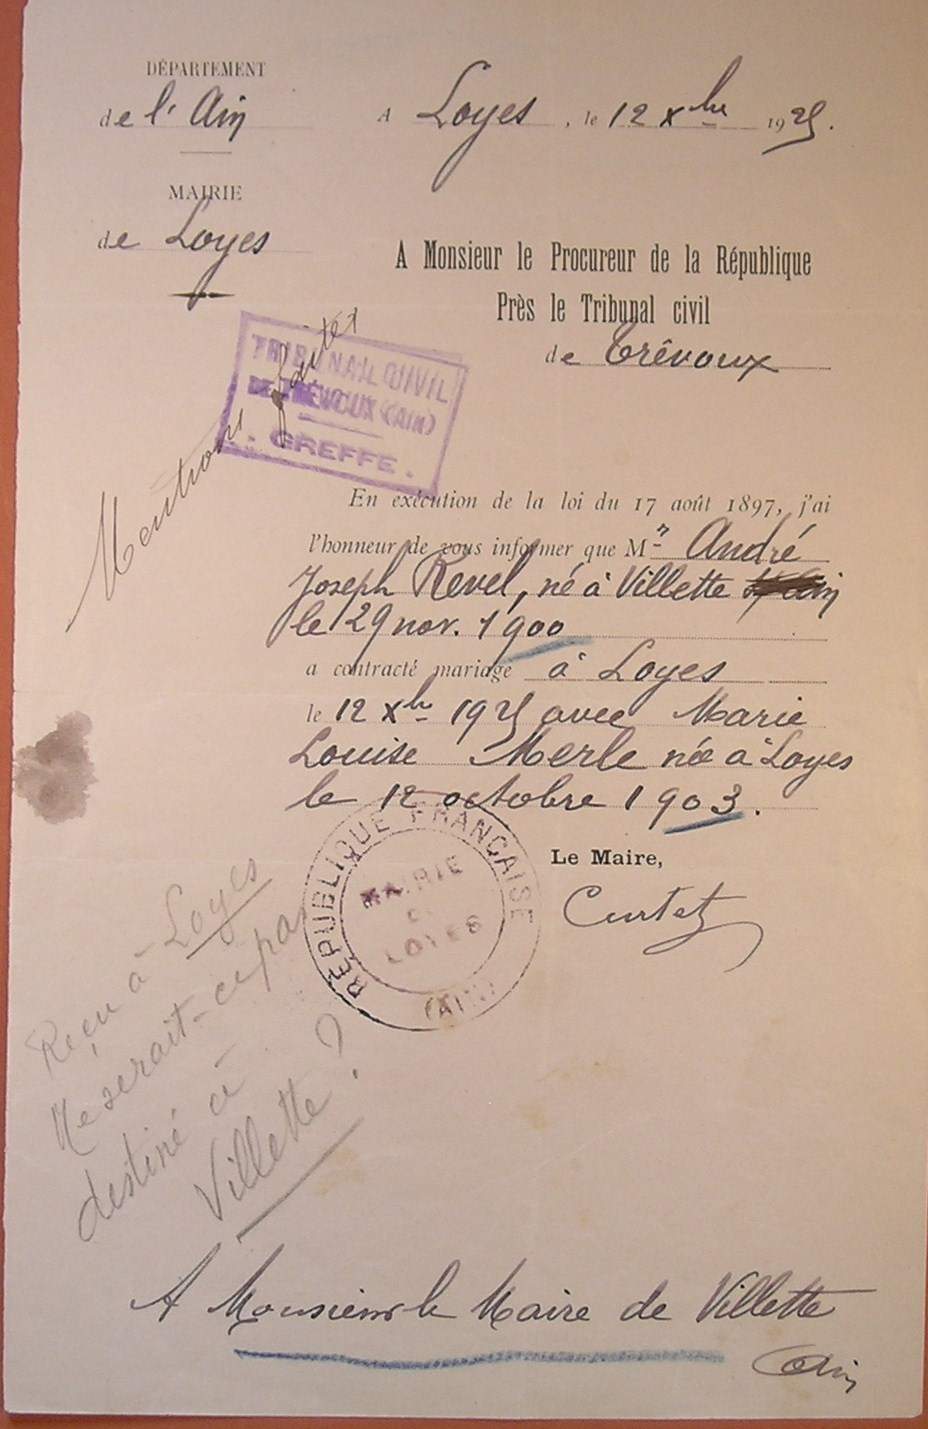 DÉPARTEMENT
de l'Ain
A Loyes, le 12 Xbre 1925.
MAIRIE
de Loyes
A Monsieur le Procureur de la République
Près le Tribunal civil
de Trévoux
TRIBUNAL CIVIL
DE TRÉVOUX (AIN)
GREFFE.
Mentions faites
En exécution de la loi du 17 août 1897, j'ai
l'honneur de vous informer que Mr André
Joseph Revel, né à Villette Ain
le 29 nov. 1900
a contracté mariage à Loyes
le 12 Xbre 1925 avec Marie
Louise Merle née à Loyes
le 12 octobre 1903.
Le Maire,
Curtet
RÉPUBLIQUE FRANÇAISE
MAIRIE
DE
LOYES
(AIN)
Reçu à Loyes
Ne serait-ce pas
destiné à
Villette ?
A Monsieur le Maire de Villette
Ain